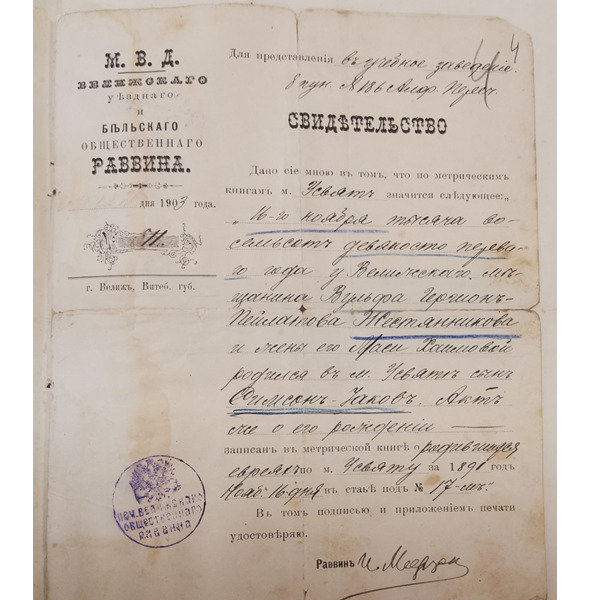 М. В. Д.
ВЕЛИЖСКАГО
уѣзднаго
и
БѢЛЬСКАГО
ОБЩЕСТВЕННАГО
РАВВИНА.
дня 1903 года.
г. Велижъ, Витеб. губ.
4
Для представленія въ учебное заведеніе.
СВИДѢТЕЛЬСТВО
Дано сіе мною въ томъ, что по метрическимъ
книгамъ м. Усвятъ значится слѣдующее:
„16-го ноября тысяча во-
семьсотъ девяносто перва-
го года у Велижскаго мѣ-
щанина Вульфа
Жестянникова
и жены его Хаимовой
родился въ м. Усвятъ сынъ
Симсонъ-Іаковъ. Актъ
же о его рожденіи
записанъ въ метрической книгѣ о родившихся
евреяхъ по м. Усвяту за 1891 годъ
Нояб. 16 дня въ статьѣ подъ № 17-мъ.
Въ томъ подписью и приложеніемъ печати
удостовѣряю.
Раввинъ
ВЕЛИЖСКАГО
ОБЩЕСТВЕННАГО
РАВВИНА